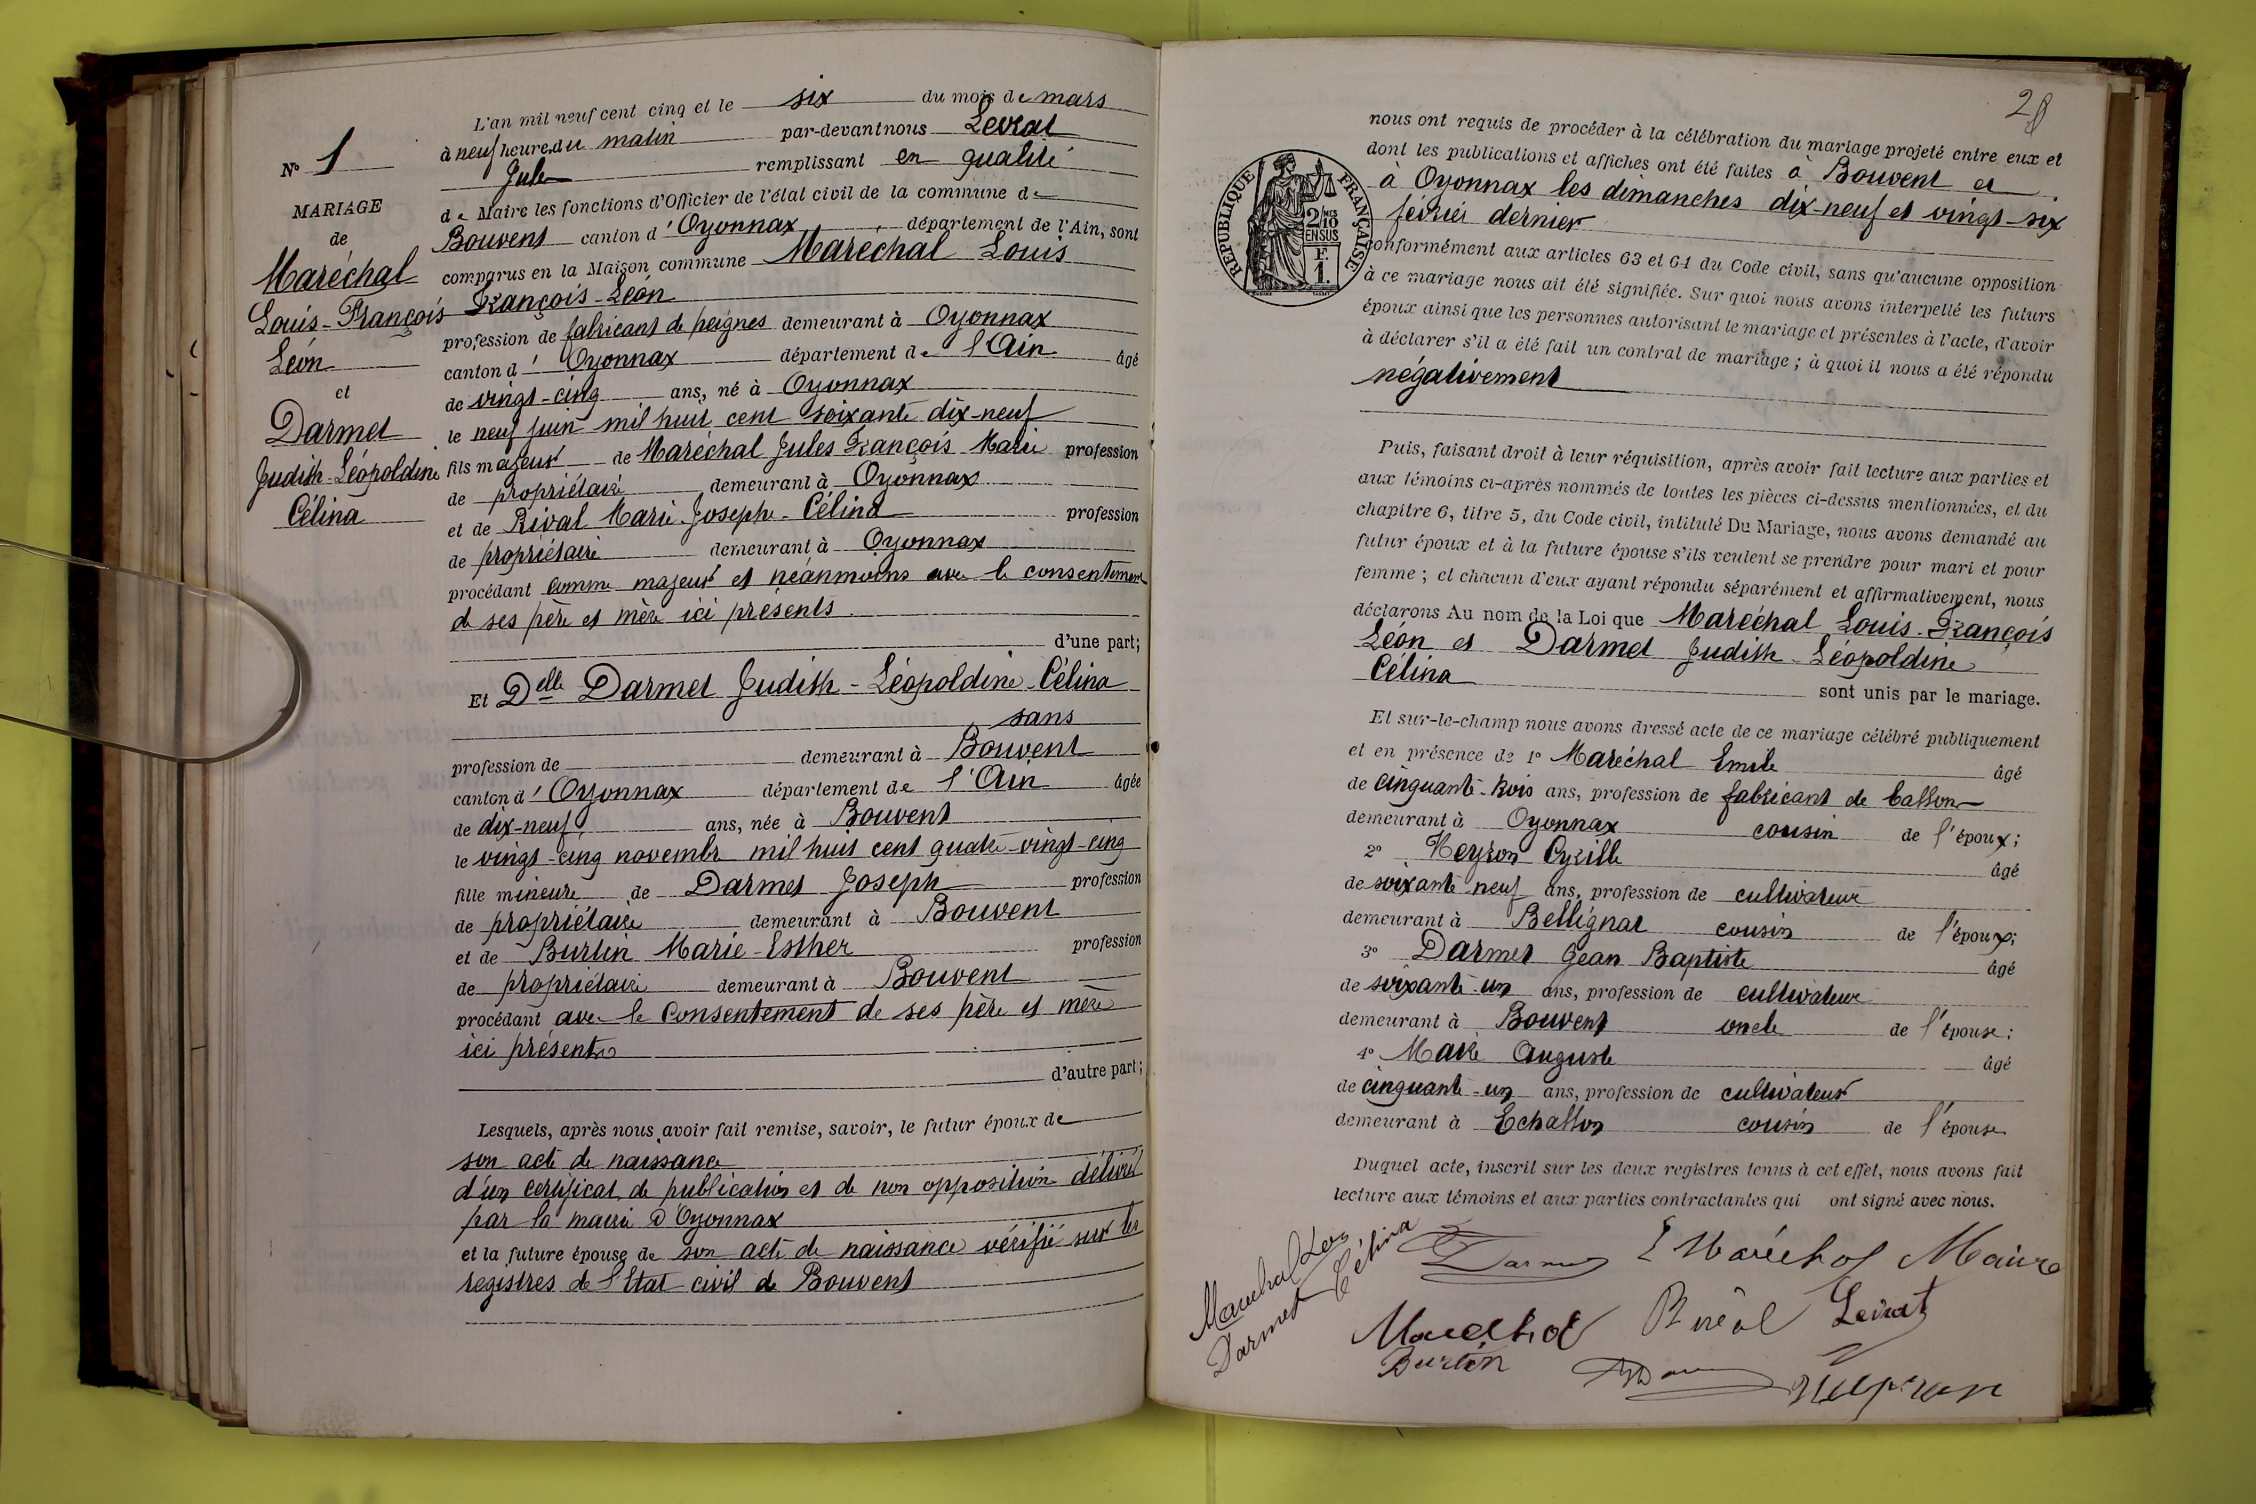 N° 1
MARIAGE
de
Maréchal
Louis-François
Léon
et
Darmet
Judith-Léopoldine
Célina
L'an mil neuf cent cinq et le six du mois de mars
à neuf heures du matin par-devant nous Levrat
Jules remplissant en qualité
de Maire les fonctions d'Officier de l'état civil de la commune de
Bouvent canton d'Oyonnax département de l'Ain, sont
comparus en la Maison commune Maréchal Louis
François-Léon
profession de fabricant de peignes demeurant à Oyonnax
canton d'Oyonnax département de l'Ain âgé
de vingt-cinq ans, né à Oyonnax
le neuf juin mil huit cent soixante dix-neuf
fils majeur de Maréchal Jules François Marie profession
de propriétaire demeurant à Oyonnax
et de Rival Marie-Joseph-Célina profession
de propriétaire demeurant à Oyonnax
procédant comme majeur et néanmoins avec le consentement
de ses père et mère ici présents
d'une part;
Et Delle Darmet Judith-Léopoldine-Célina
sans
profession de demeurant à Bouvent
canton d'Oyonnax département de l'Ain âgée
de dix-neuf ans, née à Bouvent
le vingt-cinq novembre mil huit cent quatre-vingt-cinq
fille mineure de Darmet Joseph profession
de propriétaire demeurant à Bouvent
et de Burtin Marie-Esther profession
de propriétaire demeurant à Bouvent
procédant avec le consentement de ses père et mère
ici présents
d'autre part;
Lesquels, après nous avoir fait remise, savoir, le futur époux de
son acte de naissance
d'un certificat de publication et de non opposition délivré
par la mairie d'Oyonnax
et la future épouse de son acte de naissance vérifié sur les
registres de l'Etat civil de Bouvent
28
RÉPUBLIQUE FRANÇAISE
2/10
EN SUS
F.
1.
nous ont requis de procéder à la célébration du mariage projeté entre eux et
dont les publications et affiches ont été faites à Bouvent et
à Oyonnax les dimanches dix-neuf et vingt-six
février dernier
conformément aux articles 63 et 64 du Code civil, sans qu'aucune opposition
à ce mariage nous ait été signifiée. Sur quoi nous avons interpellé les futurs
époux ainsi que les personnes autorisant le mariage et présentes à l'acte, d'avoir
à déclarer s'il a été fait un contrat de mariage; à quoi il nous a été répondu
négativement
Puis, faisant droit à leur réquisition, après avoir fait lecture aux parties et
aux témoins ci-après nommés de toutes les pièces ci-dessus mentionnées, et du
chapitre 6, titre 5, du Code civil, intitulé Du Mariage, nous avons demandé au
futur époux et à la future épouse s'ils veulent se prendre pour mari et pour
femme; et chacun d'eux ayant répondu séparément et affirmativement, nous
déclarons Au nom de la Loi que Maréchal Louis-François
Léon et Darmet Judith Léopoldine
Célina sont unis par le mariage.
Et sur-le-champ nous avons dressé acte de ce mariage célébré publiquement
et en présence de 1° Maréchal Emile âgé
de cinquante-trois ans, profession de fabricant de ballons
demeurant à Oyonnax cousin de l'époux;
2° Neyron Cyrille âgé
de soixante neuf ans, profession de cultivateur
demeurant à Bellignat cousin de l'époux;
3° Darmet Jean Baptiste âgé
de soixante-un ans, profession de cultivateur
demeurant à Bouvent oncle de l'épouse;
4° Maire Auguste âgé
de cinquante-un ans, profession de cultivateur
demeurant à Echallon cousin de l'épouse
Duquel acte, inscrit sur les deux registres tenus à cet effet, nous avons fait
lecture aux témoins et aux parties contractantes qui ont signé avec nous.
Maréchal Léon
Darmet Célina
Darmet
E Maréchal
Maire
Maréchal
Rival
Levrat
Burtin
Neyron